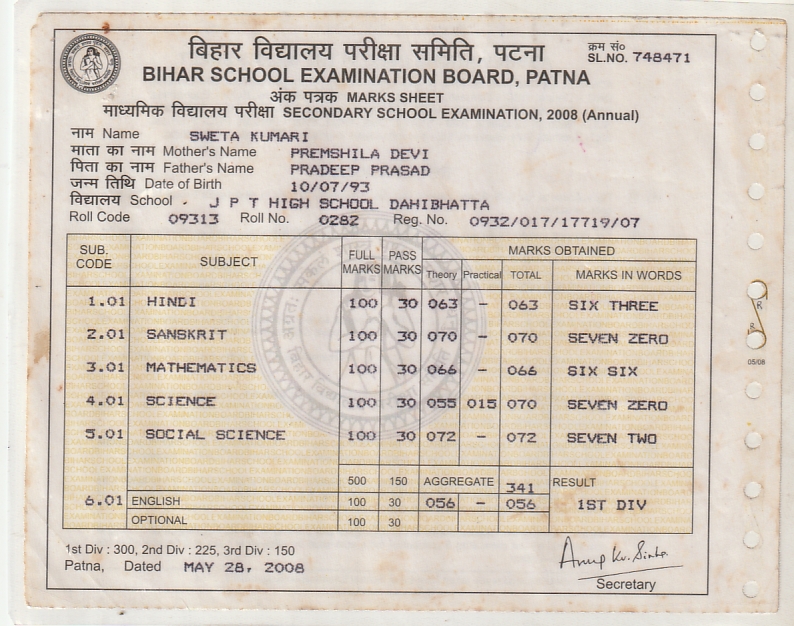 बिहार विद्यालय परीक्षा समिति, पटना
क्रम सं०
SL.NO. 748471
BIHAR SCHOOL EXAMINATION BOARD, PATNA
अंक पत्रक MARKS SHEET
माध्यमिक विद्यालय परीक्षा SECONDARY SCHOOL EXAMINATION, 2008 (Annual)
नाम Name SWETA KUMARI
माता का नाम Mother's Name PREMSHILA DEVI
पिता का नाम Father's Name PRADEEP PRASAD
जन्म तिथि Date of Birth 10/07/93
विद्यालय School . J P T HIGH SCHOOL DAHIBHATTA
Roll Code 09313 Roll No. 0282 Reg. No. 0932/017/17719/07
SUB. CODE SUBJECT FULL MARKS PASS MARKS MARKS OBTAINED
Theory Practical TOTAL MARKS IN WORDS
1.01 HINDI 100 30 063 - 063 SIX THREE
2.01 SANSKRIT 100 30 070 - 070 SEVEN ZERO
3.01 MATHEMATICS 100 30 066 - 066 SIX SIX
4.01 SCIENCE 100 30 055 015 070 SEVEN ZERO
5.01 SOCIAL SCIENCE 100 30 072 - 072 SEVEN TWO
500 150 AGGREGATE 341 RESULT
6.01 ENGLISH 100 30 056 - 056 1ST DIV
OPTIONAL 100 30
1st Div : 300, 2nd Div : 225, 3rd Div : 150
Patna, Dated MAY 28, 2008
Secretary
05/08